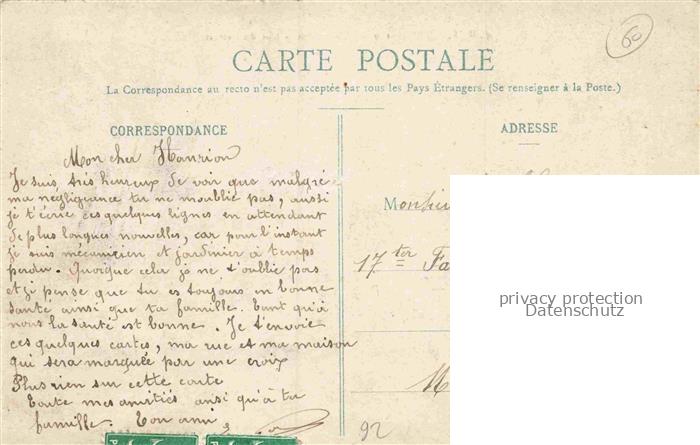 60
CARTE POSTALE
La Correspondance au recto n'est pas acceptée par tous les Pays Étrangers. (Se renseigner à la Poste.)
CORRESPONDANCE
Mon cher Hanrion
Je suis très heureux de voir que malgré
ma négligeance tu ne m'oublie pas, aussi
je t'écrie ces quelques lignes en attendant
de plus longues nouvelles, car pour l'instant
je suis mécanicien et jardinier à temps
perdu. Quoique cela je ne t'oublie pas
et je pense que tu es toujours en bonne
santé ainsi que ta famille. Tant qu'à
nous la santé est bonne. Je t'envoie
ces quelques cartes, ma rue et ma maison
qui sera marquée par une croix
Plus rien sur cette carte
Toute mes amitiés ainsi qu'à ta
famille. Ton ami,
ADRESSE
Monsieu
17 ter Fa
M
92
privacy protection
Datenschutz